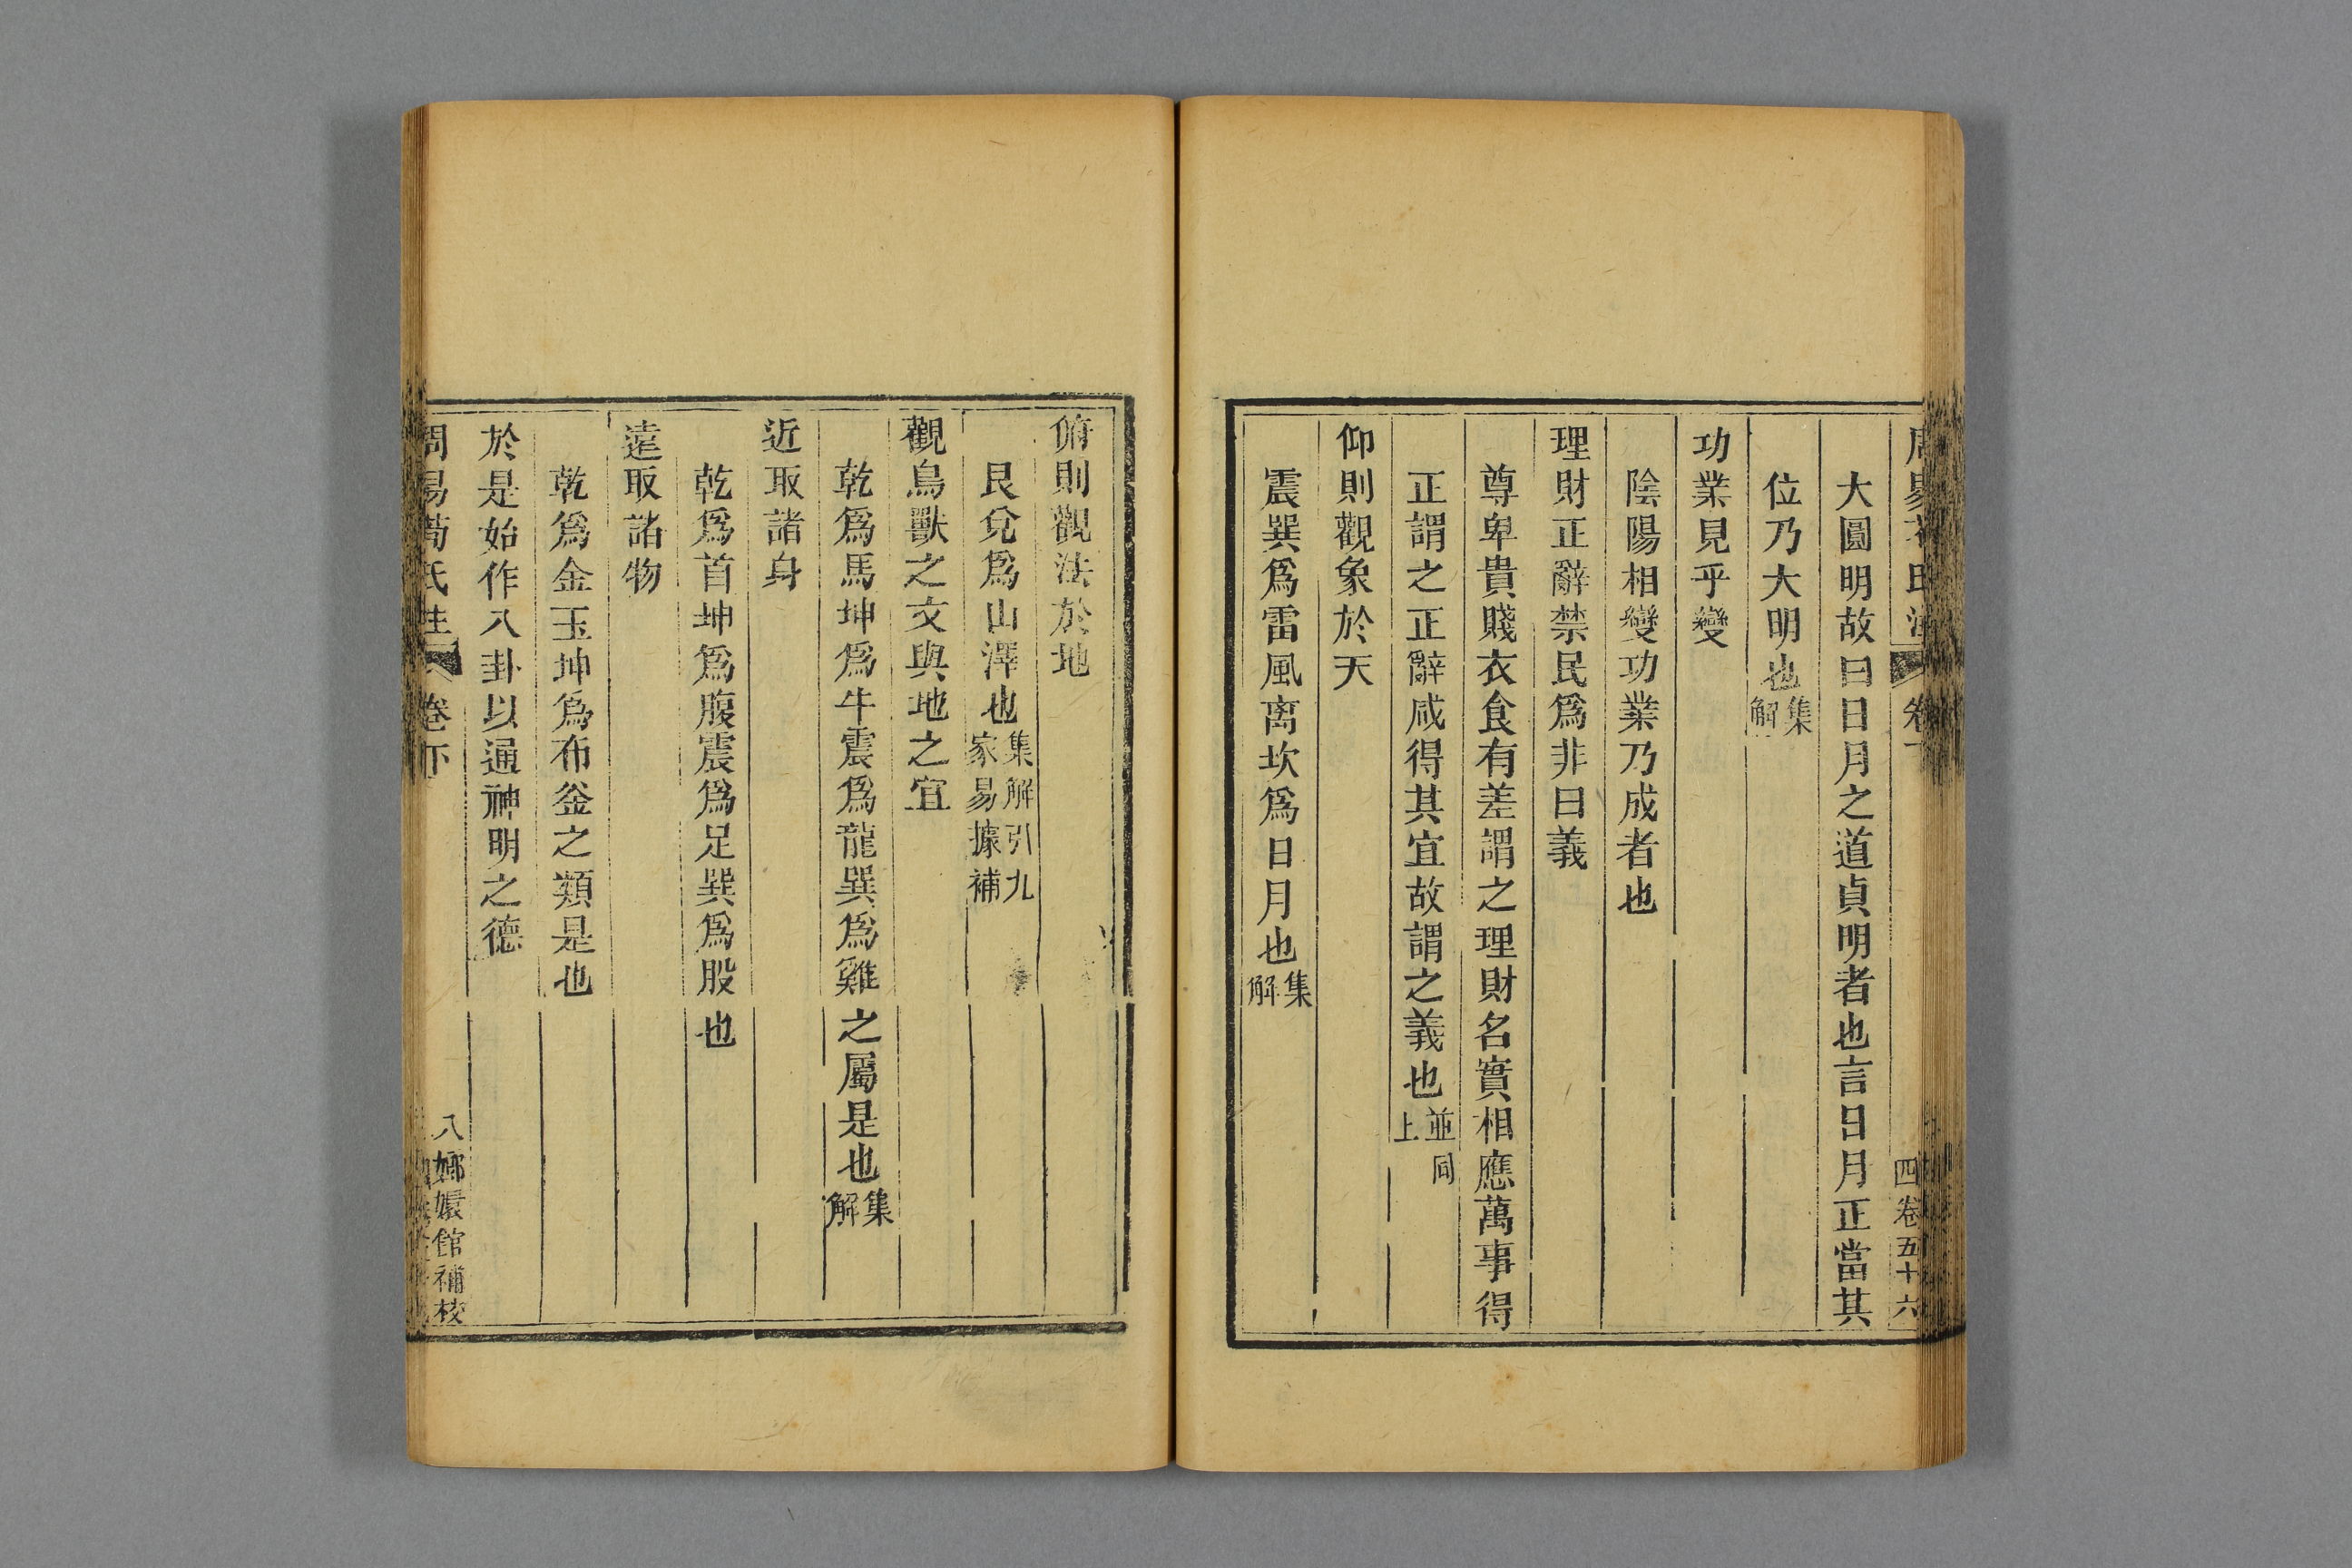 大圓明故曰日月之道貞明者也言日月正當其
位乃大明也集解
功業見乎變
陰陽相變功業乃成者也
理財正辭禁民爲非曰義
尊卑貴賤衣食有差謂之理財名實相應萬事得
正謂之正辭咸得其宜故謂之義也並同上
仰則觀象於天
震巽爲雷風离坎爲日月也集解
四卷五十六
俯則觀法於地
艮兌爲山澤也集解引九家易據補
觀鳥獸之文與地之宜
乾爲馬坤爲牛震爲龍巽爲雞之屬是也集解
近取諸身
乾爲首坤爲腹震爲足巽爲股也
遠取諸物
乾爲金玉坤爲布釜之類是也
於是始作八卦以通神明之德
周易荀氏注 卷下
八 嫏嬛館補校